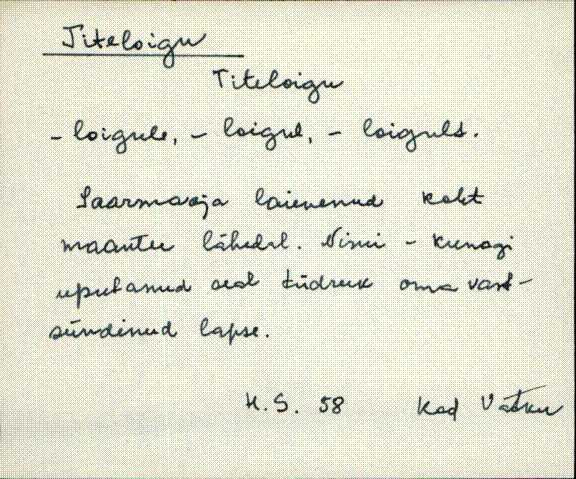 Titeloigu
Titeloigu
- loigule, - loigul, - loigult.
Saarmaoja laienenud koht
maantee lähedal. Nimi - kunagi
uputanud seal tüdruk oma vast-
sündinud lapse.
H.S. 58 Kad Vatku